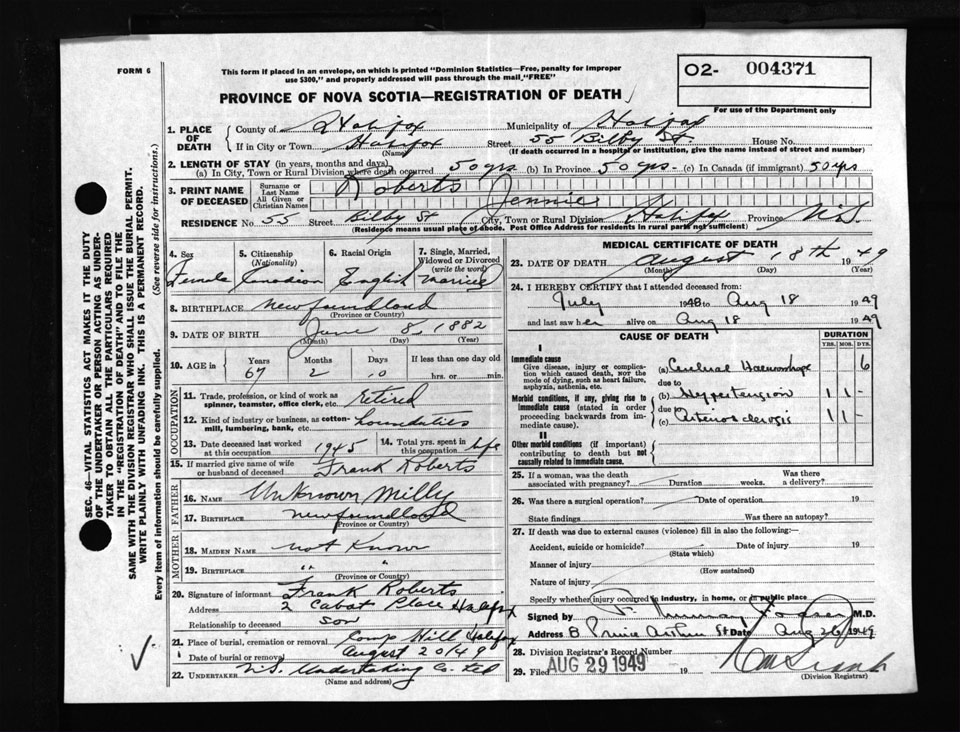 FORM 6
This form if placed in an envelope, on which is printed "Dominion Statistics—Free, penalty for improper
use $300," and properly addressed will pass through the mail "FREE"
O2- 004371
For use of the Department only
PROVINCE OF NOVA SCOTIA—REGISTRATION OF DEATH
1. PLACE OF DEATH
County of Halifax Municipality of Halifax
If in City or Town Halifax Street 55 Bilby St. House No.
(Name) (If death occurred in a hospital or institution, give the name instead of street and number)
2. LENGTH OF STAY (in years, months and days)
(a) In City, Town or Rural Division where death occurred 50 yrs (b) In Province 50 yrs (c) In Canada (if immigrant) 50 yrs
3. PRINT NAME OF DECEASED
Surname or Last Name Roberts
All Given or Christian Names Jennie
RESIDENCE No. 55 Street Bilby St City, Town or Rural Division Halifax Province N.S.
(Residence means usual place of abode. Post Office Address for residents in rural parts not sufficient)
SEC. 46—VITAL STATISTICS ACT MAKES IT THE DUTY
OF THE UNDERTAKER OR PERSON ACTING AS UNDER-
TAKER TO OBTAIN ALL THE PARTICULARS REQUIRED
IN THE "REGISTRATION OF DEATH" AND TO FILE THE
SAME WITH THE DIVISION REGISTRAR WHO SHALL ISSUE THE BURIAL PERMIT.
WRITE PLAINLY WITH UNFADING INK. THIS IS A PERMANENT RECORD.
Every item of information should be carefully supplied. (See reverse side for instructions.)
4. Sex 5. Citizenship (Nationality) 6. Racial Origin 7. Single, Married, Widowed or Divorced (write the word)
Female Canadian English Married
8. BIRTHPLACE Newfoundland
(Province or Country)
9. DATE OF BIRTH June 8, 1882
(Month) (Day) (Year)
10. AGE in Years Months Days If less than one day old
67 2 10 hrs. or min.
OCCUPATION
11. Trade, profession, or kind of work as spinner, teamster, office clerk, etc. Retired
12. Kind of industry or business, as cotton-mill, lumbering, bank, etc.
13. Date deceased last worked at this occupation 1945 14. Total yrs. spent in this occupation life
15. If married give name of wife or husband of deceased Frank Roberts
FATHER
16. NAME Unknown Milly
17. BIRTHPLACE Newfoundland
(Province or Country)
MOTHER
18. MAIDEN NAME Not Known
19. BIRTHPLACE " "
(Province or Country)
20. Signature of informant Frank Roberts
Address 2 Cabot Place Halifax
Relationship to deceased son
21. Place of burial, cremation or removal Camp Hill Halifax
Date of burial or removal August 20/49
22. UNDERTAKER N.S. Undertaking Co. Ltd
(Name and address)
MEDICAL CERTIFICATE OF DEATH
23. DATE OF DEATH August 18th 1949
(Month) (Day) (Year)
24. I HEREBY CERTIFY that I attended deceased from:
July 1948 to Aug 18 1949
and last saw her alive on Aug 18 1949
CAUSE OF DEATH DURATION
YRS. MOS. DYS.
I
Immediate cause
Give disease, injury or complication which caused death, NOT the mode of dying, such as heart failure, asphyxia, asthenia, etc.
(a) Cerebral Haemorrhage 6
due to
Morbid conditions, if any, giving rise to immediate cause (stated in order proceeding backwards from immediate cause).
(b) Hypertension 1 1 -
due to
(c) Arteriosclerosis 1 1 -
II
Other morbid conditions (if important) contributing to death but not causally related to immediate cause.
25. If a woman, was the death associated with pregnancy? Duration weeks. Was there a delivery?
26. Was there a surgical operation? Date of operation 19
State findings Was there an autopsy?
27. If death was due to external causes (violence) fill in also the following:
Accident, suicide or homicide? Date of injury 19
(State which)
Manner of injury
(How sustained)
Nature of injury
Specify whether injury occurred in industry, in home, or in public place
Signed by Murray Fraser M.D.
Address 8 Prince Arthur St Date Aug 26 1949
28. Division Registrar's Record Number
29. Filed AUG 29 1949 19
(Division Registrar)